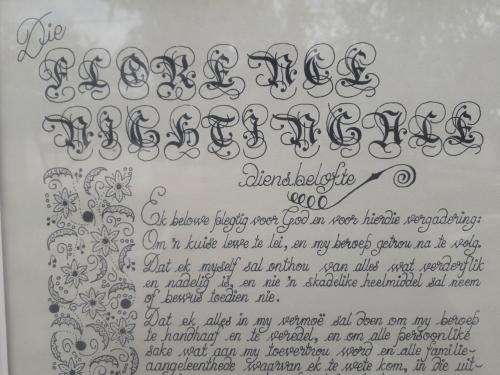 Die
FLORENCE
NIGHTINGALE
diensbelofte
Ek belowe plegtig voor God en voor hierdie vergadering:
Om 'n kuise lewe te lei, en my beroep getrou na te volg.
Dat ek myself sal onthou van alles wat verderflik
en nadelig is, en nie 'n skadelike heelmiddel sal neem
of bewus toedien nie.
Dat ek alles in my vermoë sal doen om my beroep
te handhaaf en te veredel, en om alle persoonlike
sake wat aan my toevertrou word en alle familie-
aangeleenthede waarvan ek te wete kom, in die uit-